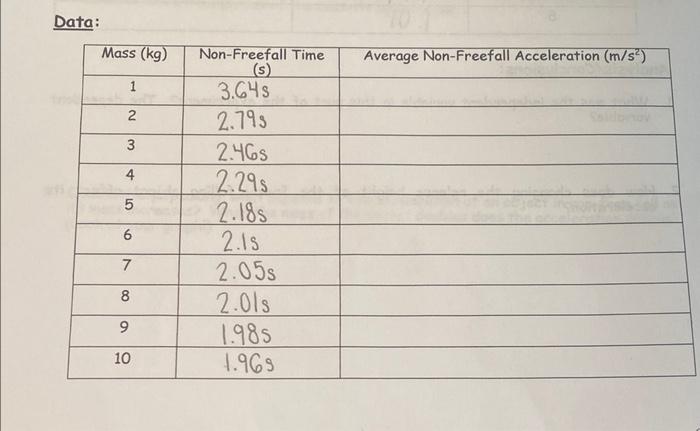 Data:
Mass (kg) Non-Freefall Time (s) Average Non-Freefall Acceleration (m/s²)
1 3.64s
2 2.79s
3 2.46s
4 2.29s
5 2.18s
6 2.1s
7 2.05s
8 2.01s
9 1.98s
10 1.96s